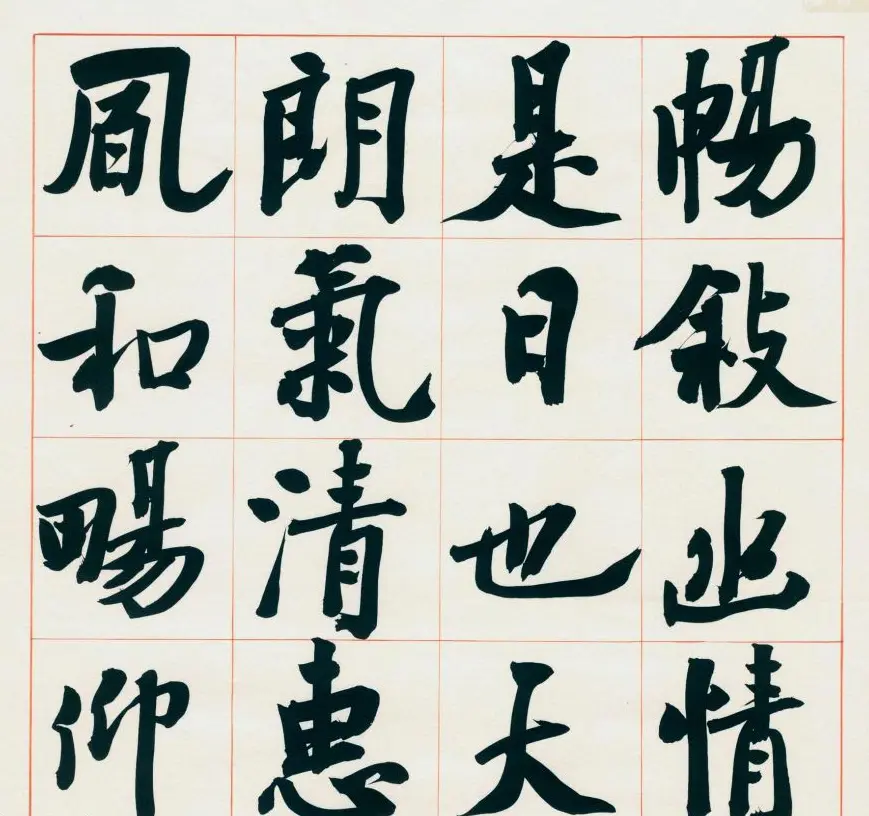 暢敘幽情
是日也天
朗氣清惠
風和暢仰